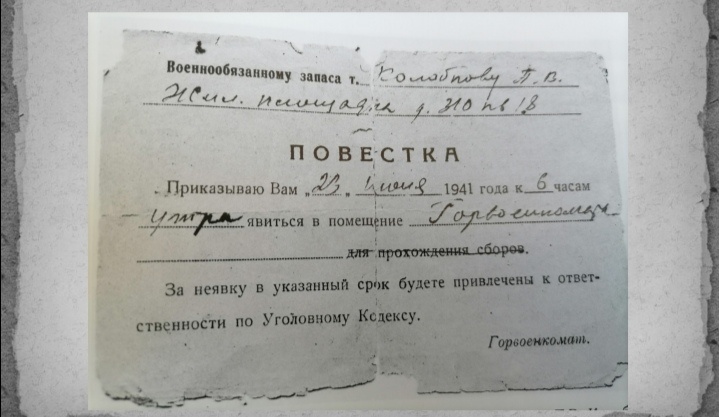 Военнообязанному запаса т. Колобкову П. В.
Жил. площадка д. 310 кв 18
ПОВЕСТКА
Приказываю Вам „23„ июня 1941 года к 6 часам
утра явиться в помещение Горвоенкомата
для прохождения сборов.
За неявку в указанный срок будете привлечены к ответ-
ственности по Уголовному Кодексу.
Горвоенкомат.